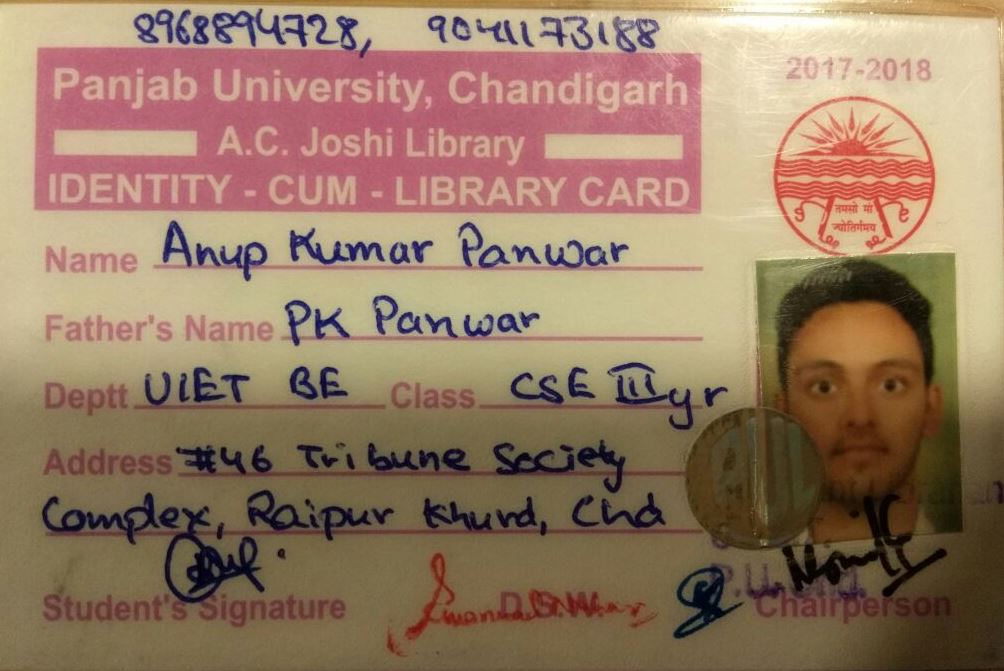 8968894728, 9041173188
2017-2018
Panjab University, Chandigarh
A.C. Joshi Library
IDENTITY - CUM - LIBRARY CARD
तमसो मा
ज्योतिर्गमय
Name Anup Kumar Panwar
Father's Name PK Panwar
Deptt UIET BE Class CSE III yr
Address #46 Tribune Society
Complex, Raipur Khurd, Chd
P.U. Chd.
Student's Signature D.S.W. Chairperson